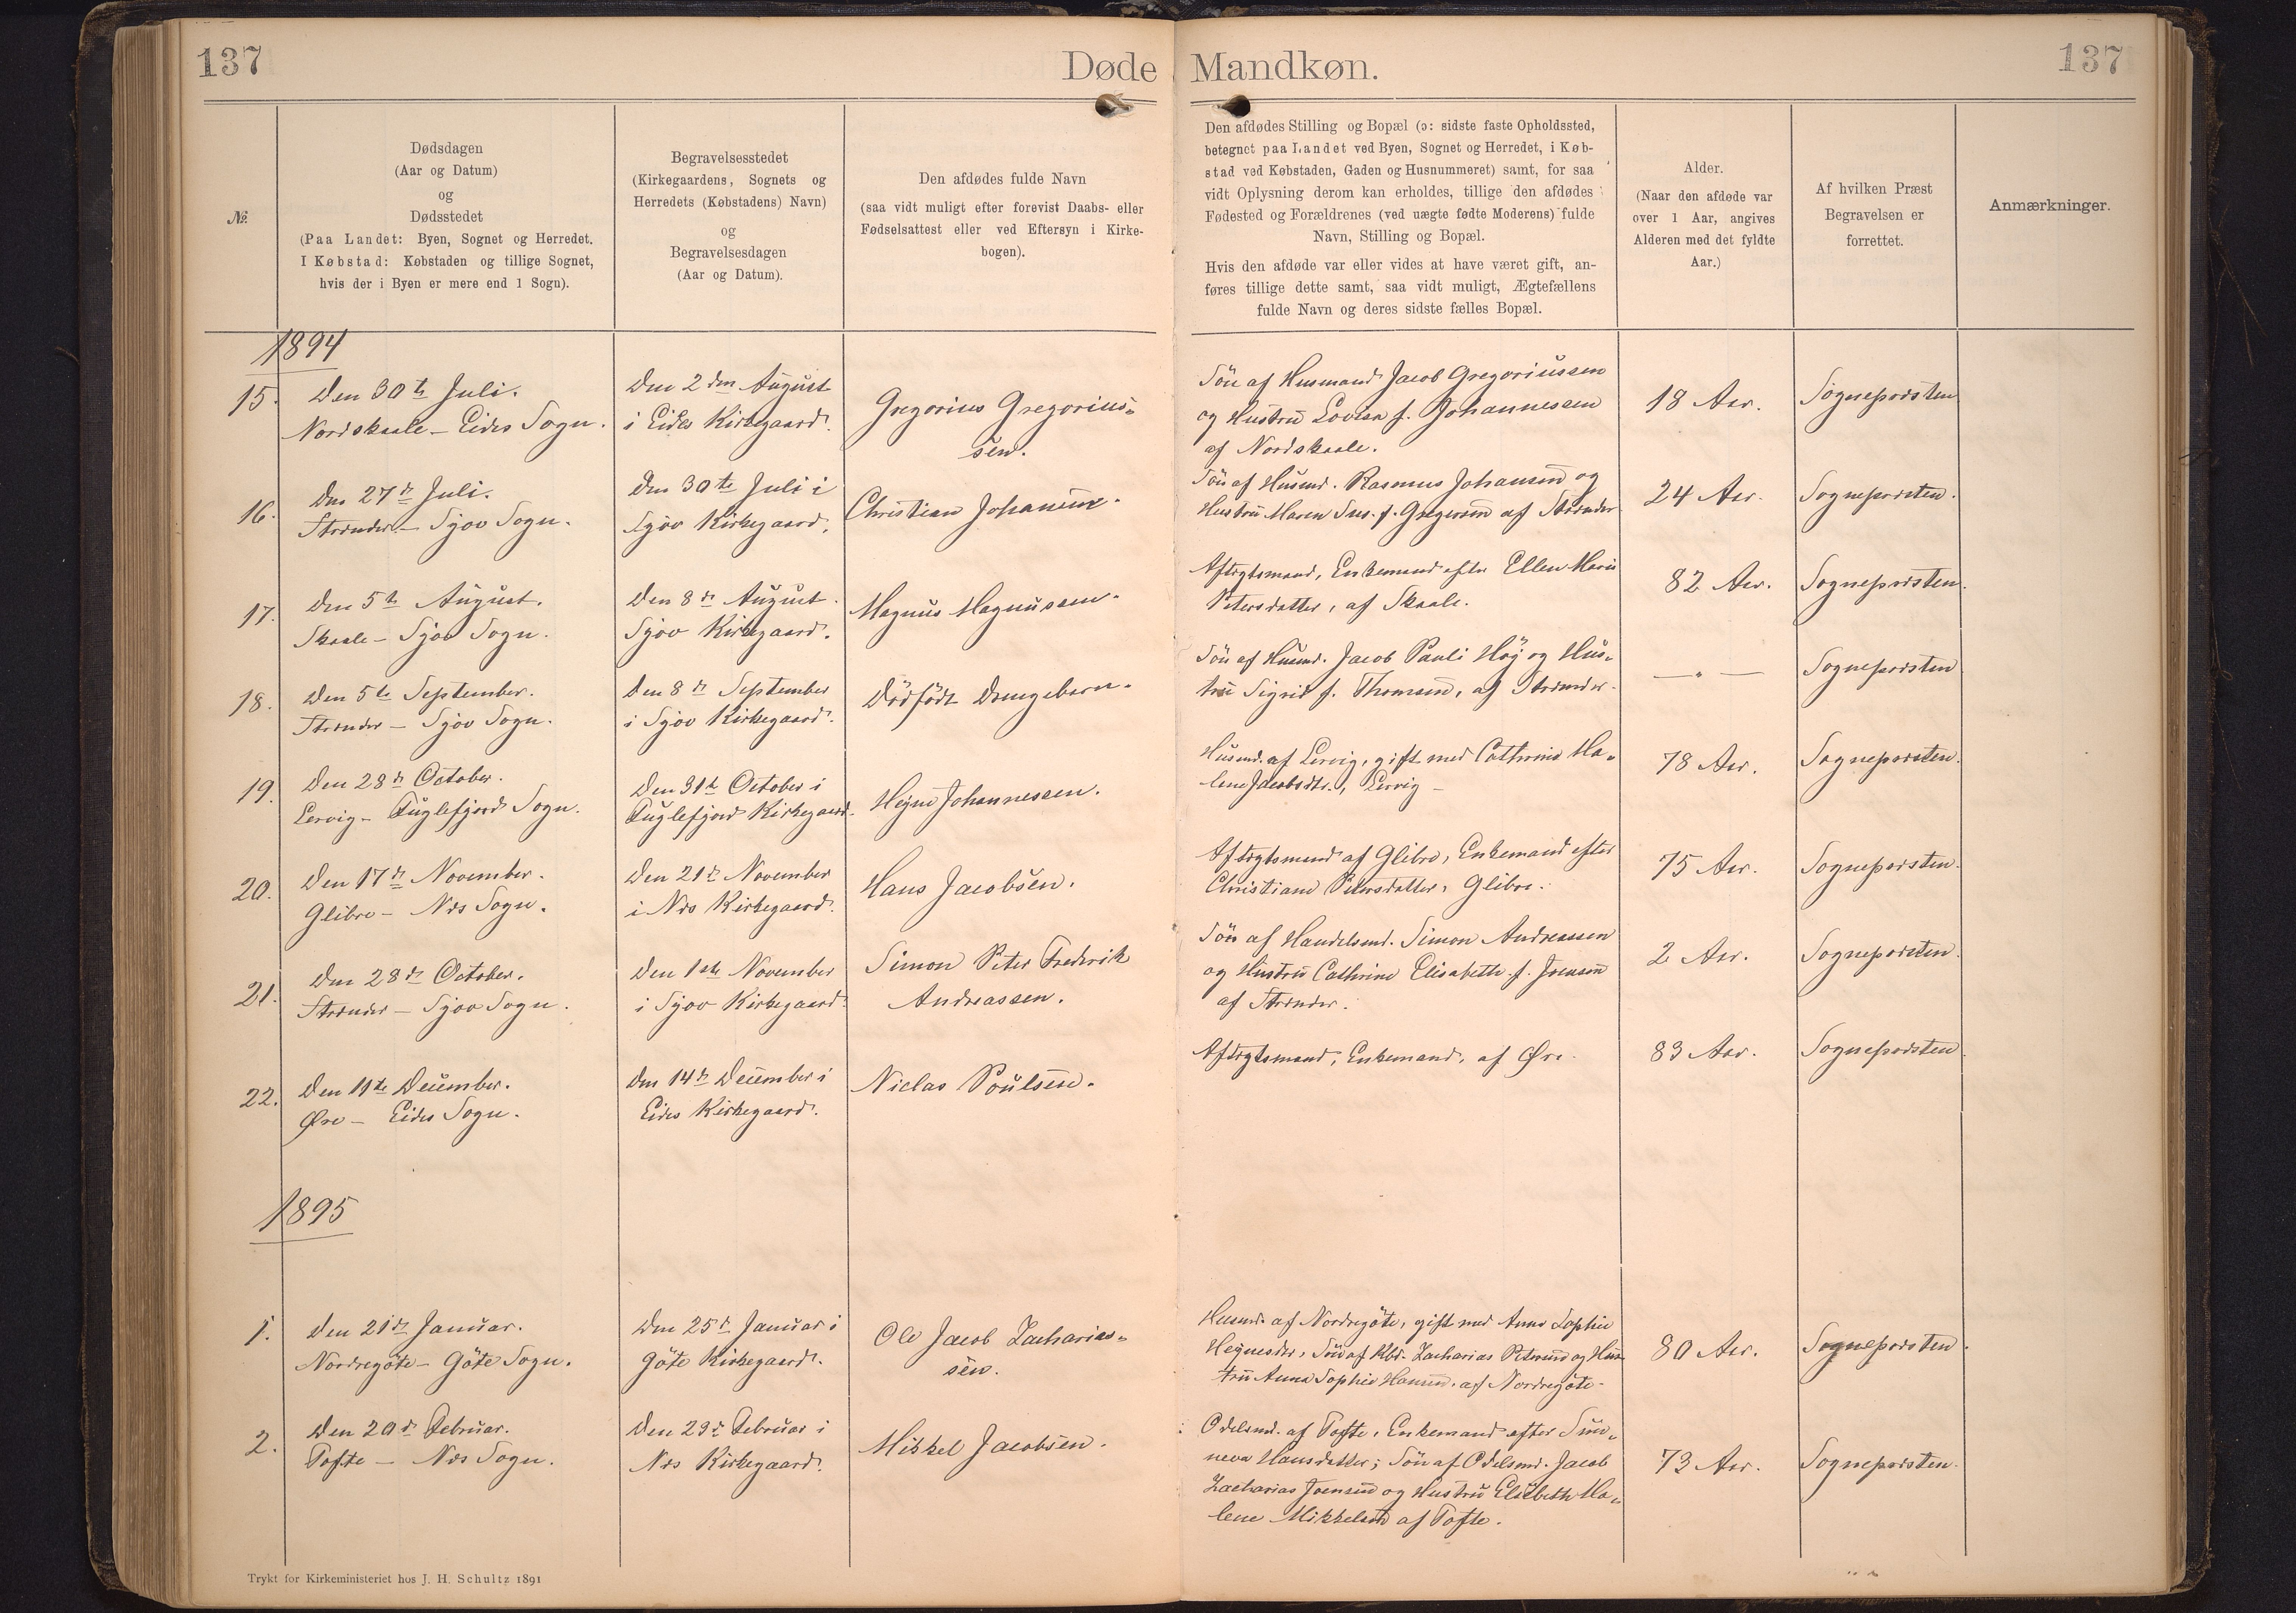 137
Døde Mandkøn.
137
№
Dødsdagen
(Aar og Datum)
og
Dødsstedet
(Paa Landet: Byen, Sognet og Herredet.
I Købstad: Købstaden og tillige Sognet,
hvis der i Byen er mere end 1 Sogn).
Begravelsesstedet
(Kirkegaardens, Sognets og
Herredets (Købstadens) Navn)
og
Begravelsesdagen
(Aar og Datum).
Den afdødes fulde Navn
(saa vidt muligt efter forevist Daabs- eller
Fødselsattest eller ved Eftersyn i Kirke-
bogen).
Den afdødes Stilling og Bopæl (ɔ: sidste faste Opholdssted,
betegnet paa Landet ved Byen, Sognet og Herredet, i Køb-
stad ved Købstaden, Gaden og Husnummeret) samt, for saa
vidt Oplysning derom kan erholdes, tillige den afdødes
Fødested og Forældrenes (ved uægte fødte Moderens) fulde
Navn, Stilling og Bopæl.
Hvis den afdøde var eller vides at have været gift, an-
føres tillige dette samt, saa vidt muligt, Ægtefællens
fulde Navn og deres sidste fælles Bopæl.
Alder.
(Naar den afdøde var
over 1 Aar, angives
Alderen med det fyldte
Aar.)
Af hvilken Præst
Begravelsen er
forrettet.
Anmærkninger.
1894
15.
Den 30te Juli.
Nordskaale – Eides Sogn.
Den 2den August
i Eides Kirkegaard.
Gregorius Gregorius-
sen.
Søn af Husmand Jacob Gregoriussen
og Hustru Lovisa f. Johannessen
af Nordskaale.
18 Aar.
Sognepræsten
16.
Den 27de Juli.
Strænder – Sjov Sogn.
Den 30te Juli i
Sjov Kirkegaard.
Christian Johansen.
Søn af Husmd. Rasmus Johansen og
Hustru Maren Sus. f. Gregersen af Strænder
24 Aar.
Sognepræsten.
17.
Den 5te August.
Skaale – Sjov Sogn.
Den 8de August.
Sjov Kirkegaard.
Magnus Magnussen.
Aftægtsmand, Enkemand efter Ellen Marie
Petersdatter, af Skaale.
82 Aar.
Sognepræsten.
18.
Den 5te September.
Strænder – Sjov Sogn.
Den 8de September
i Sjov Kirkegaard.
Dödfödt Drengebarn.
Søn af Husmd. Jacob Pauli Höj og Hus-
tru Sigrid f. Thomsen, af Strænder.
— " —
Sognepræsten
19.
Den 28de October.
Lervig – Fuglefjord Sogn.
Den 31te October i
Fuglefjord Kirkegaard.
Hejne Johannessen.
Husmd. af Lervig, gift med Cathrine Ma-
lene Jacobsdtr., Lervig –
78 Aar.
Sognepræsten.
20.
Den 17de November.
Glibre – Næs Sogn.
Den 21de November
i Næs Kirkegaard.
Hans Jacobsen.
Aftægtsmand af Glibre, Enkemand efter
Christiane Petersdatter, Glibre.
75 Aar.
Sognepræsten.
21.
Den 28de October.
Strænder – Sjov Sogn.
Den 1ste November
i Sjov Kirkegaard.
Simon Peter Frederik
Andreassen.
Søn af Handelsmd. Simon Andreassen
og Hustru Cathrine Elisabeth f. Joensen
af Strænder.
2 Aar.
Sognepræsten.
22.
Den 11te December.
Øre – Eides Sogn.
Den 14de December i
Eides Kirkegaard.
Niclas Poulsen.
Aftægtsmand, Enkemand, af Øre.
83 Aar.
Sognepræsten.
1895
1.
Den 21de Januar.
Nordregöte – Göte Sogn.
Den 25de Januar i
Göte Kirkegaard.
Ole Jacob Zacharias-
sen.
Husmd. af Nordregöte, gift med Anna Sophie
Hejnesdtr, Søn af Kbd. Zacharias Petersen og Hus-
tru Anna Sophie Hansen, af Nordregöte.
80 Aar.
Sognepræsten.
2.
Den 20de Februar.
Tofte – Næs Sogn.
Den 23de Februar i
Næs Kirkegaard.
Mikkel Jacobsen.
Odelsmd. af Tofte, Enkemand efter Sun-
neva Hansdatter; Søn af Odelsmd. Jacob
Zacharias Joensen og Hustru Elisbeth Ma-
lene Mikkelsen af Tofte.
73 Aar.
Sognepræsten.
Trykt for Kirkeministeriet hos J. H. Schultz 1891